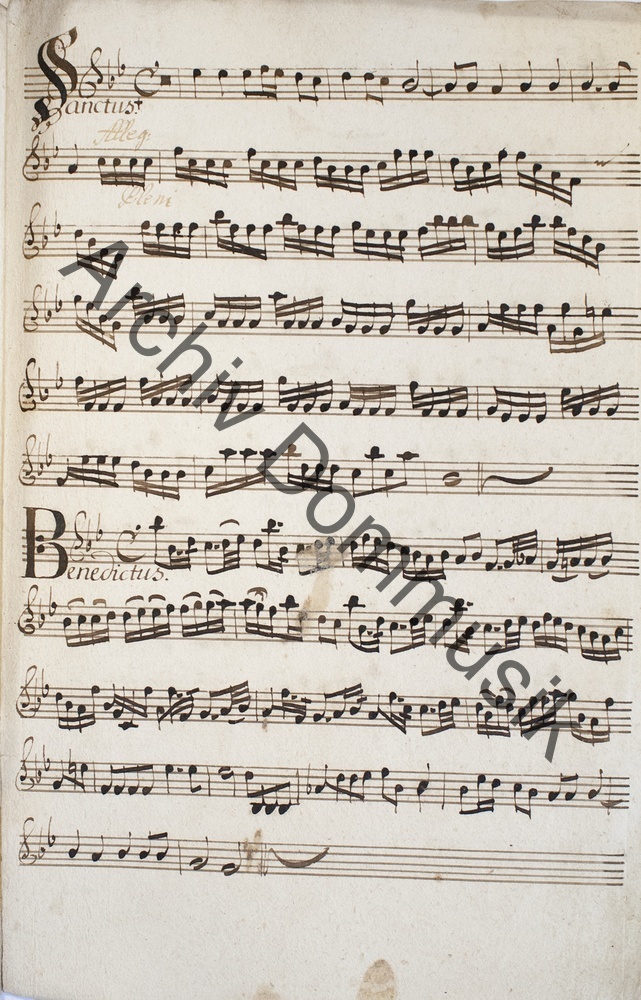 Sanctus.
Alleg:
Pleni
Benedictus.
Archiv Dommusik